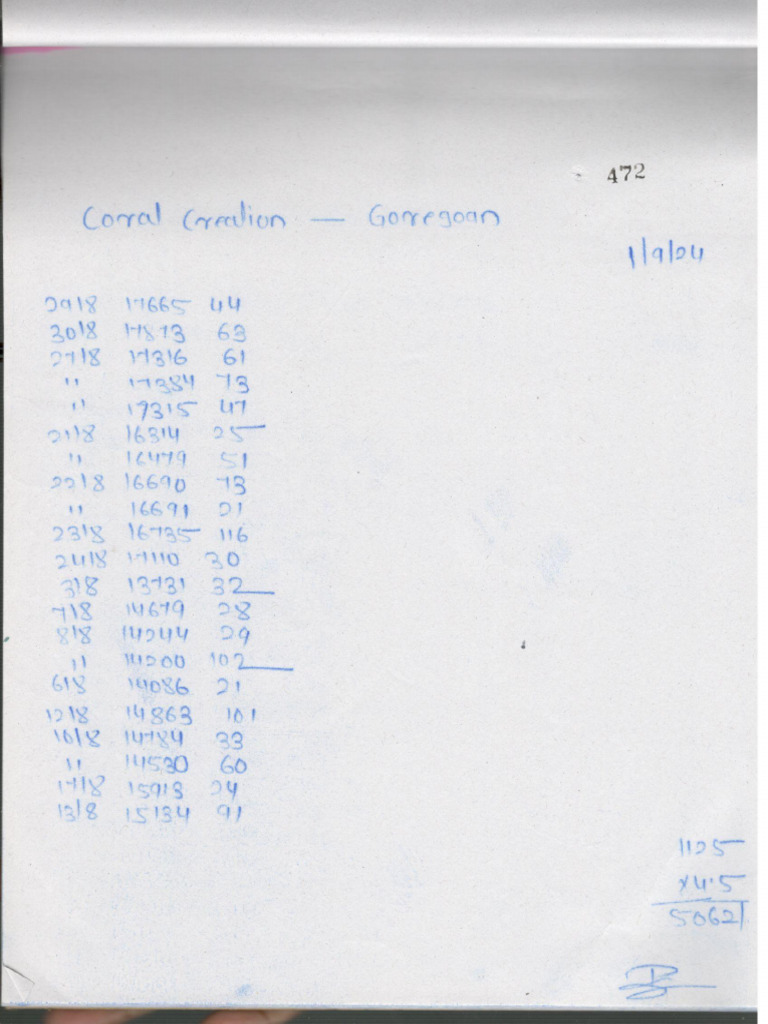 472
Coral Creation — Goregoan
1/9/24
29/8 17665 44
30/8 17873 63
27/8 17316 61
" 17384 73
" 17315 47
21/8 16314 25
" 16479 51
22/8 16690 73
" 16691 21
23/8 16735 116
24/8 17110 30
3/8 13731 32
7/8 14679 28
8/8 14244 29
" 14200 102
6/8 14086 21
12/8 14863 101
10/8 14784 33
" 14530 60
17/8 15913 24
13/8 15134 91
1125
x4.5
5062/